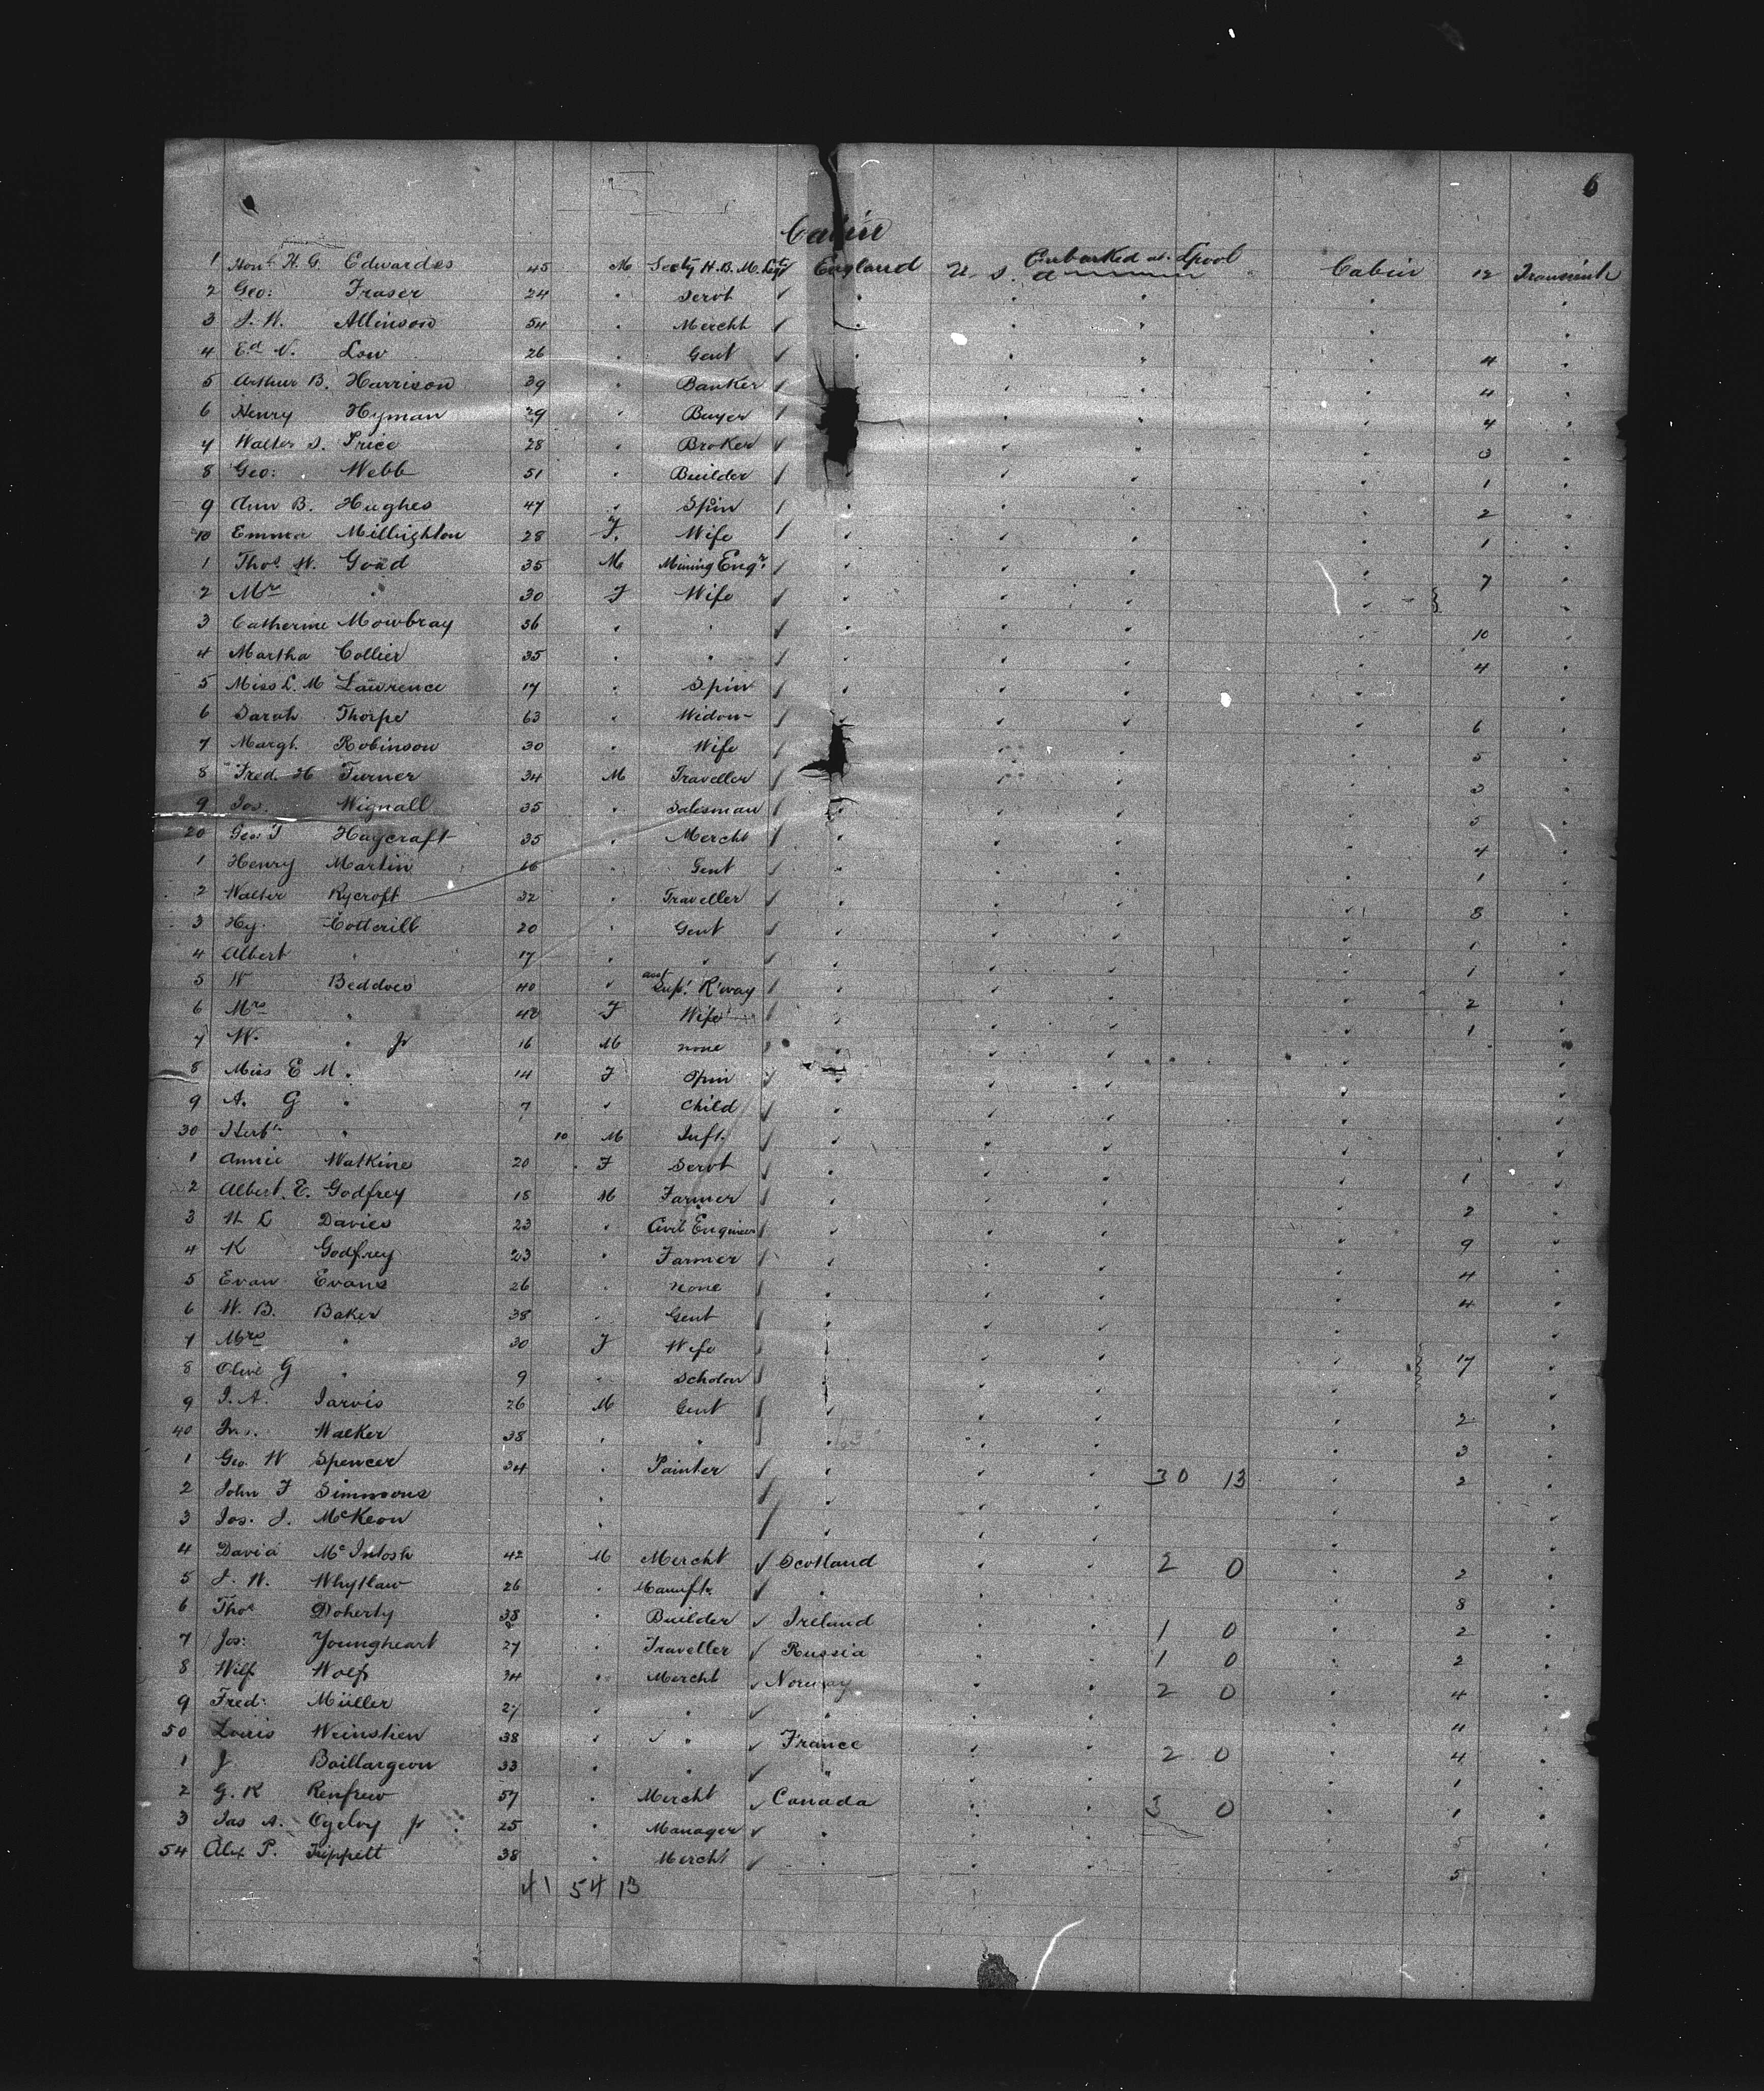 6
Cabin
1 Honble H. G. Edwardes 45 M Secty H. B. M. Legt England U. S. a Embarked at Lpool Cabin 12 Transient
2 Geo: Fraser 24 " Servt ✓ " " " "
3 J. W. Allinson 54 " Mercht ✓ " " " " "
4 Ed N. Low 26 " Gent ✓ " " " " 4 "
5 Arthur B. Harrison 39 " Banker ✓ " " " " 4 "
6 Henry Hyman 29 " Buyer ✓ " " " " 4 "
7 Walter S. Price 28 " Broker ✓ " " " " 3 "
8 Geo: Webb 51 " Builder ✓ " " " " 1 "
9 Ann B. Hughes 47 " Spin ✓ " " " " 2 "
10 Emma Millighton 28 F. Wife ✓ " " " " 1 "
1 Thos W. Goad 35 M Mining Engr. ✓ " " " " 7 "
2 Mrs " 30 F Wife ✓ " " " " "
3 Catherine Mowbray 36 " " ✓ " " " " 10 "
4 Martha Collier 35 " " ✓ " " " " 4 "
5 Miss L. M Lawrence 17 " Spin ✓ " " " "
6 Sarah Thorpe 63 " Widow ✓ " " " " 6 "
7 Margt. Robinson 30 " Wife ✓ " " " " 5 "
8 Fred H Turner 34 M Traveller ✓ " " " " 3 "
9 Jos. Wignall 35 " Salesman ✓ " " " " 5 "
20 Geo: T Haycraft 35 " Mercht ✓ " " " " 4 "
1 Henry Martin 66 " Gent ✓ " " " " 1 "
2 Walter Rycroft 32 " Traveller ✓ " " " " 8 "
3 Hy. Cotterill 20 " Gent ✓ " " " " 1 "
4 Albert " 17 " " ✓ " " " " 1 "
5 W Beddoes 40 " asst Supt. R'way ✓ " " " " 2 "
6 Mrs " 42 F Wife ✓ " " " " 1 "
7 W. " Jr 16 M none " " " " "
8 Miss E M. " 14 F Spin ✓ " " " " "
9 A. G " 7 " Child ✓ " " " " "
30 Herbt " 10 M Inft. ✓ " " " " "
1 Annie Watkins 20 F Servt ✓ " " " " 1 "
2 Albert. E. Godfrey 18 M Farmer ✓ " " " " 2 "
3 H L Davies 23 " Civil Engineer ✓ " " " " 9 "
4 K Godfrey 23 " Farmer ✓ " " " " 4 "
5 Evan Evans 26 " none ✓ " " " " 4 "
6 W. B. Baker 38 " Gent ✓ " " " " "
7 Mrs " 30 F Wife ✓ " " " " 17 "
8 Olive G " 9 " Scholar ✓ " " " " "
9 J. A. Jarvis 26 M Gent ✓ " " " " 2 "
40 Jno. Walker 38 " " ✓ " " " " 3 "
1 Geo. W Spencer 34 " Painter ✓ " " " 30 13 " 2 "
2 John F Simmons " ✓ " " " " "
3 Jos. J. McKeon " ✓ " " " " "
4 David McIntosh 42 M Mercht ✓ Scotland " " 2 0 " 2 "
5 J. W. Whytlaw 26 " Manuftr ✓ " " " " 8 "
6 Thos Doherty 38 " Builder ✓ Ireland " " 1 0 " 2 "
7 Jos: Youngheart 27 " Traveller ✓ Russia " " 1 0 " 2 "
8 Wilf Wolff 34 " Mercht ✓ Norway " " 2 0 " 4 "
9 Fred: Müller 27 " " ✓ " " " " 11 "
50 Louis Weinstien 38 " " ✓ France " " 2 0 " 4 "
1 J Baillargeon 33 " " ✓ " " " " 1 "
2 G. R Renfrew 57 " Mercht ✓ Canada " " 3 0 " 1 "
3 Jas A. Ogilvy Jr 25 " Manager ✓ " " " " 5 "
54 Alex P. Tippett 38 " Mercht ✓ " " " " 5 "
41 54 13